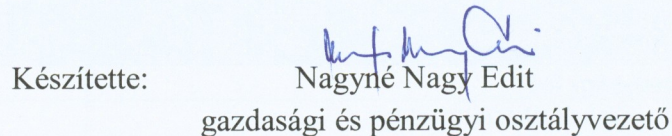 Készítette: Nagyné Nagy Edit
gazdasági és pénzügyi osztályvezető